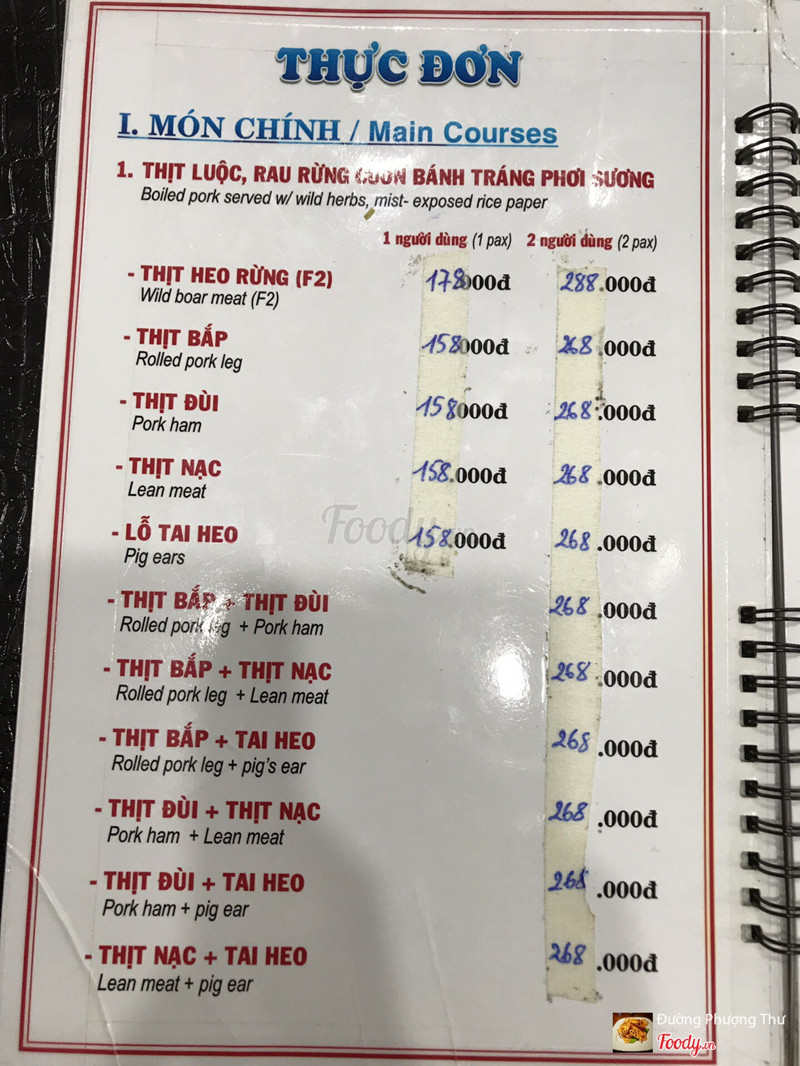 THỰC ĐƠN
I. MÓN CHÍNH / Main Courses
1. THỊT LUỘC, RAU RỪNG CUỐN BÁNH TRÁNG PHƠI SƯƠNG
Boiled pork served w/ wild herbs, mist- exposed rice paper
1 người dùng (1 pax) 2 người dùng (2 pax)
- THỊT HEO RỪNG (F2) 178000đ 288.000đ
Wild boar meat (F2)
- THỊT BẮP 158000đ 268.000đ
Rolled pork leg
- THỊT ĐÙI 158000đ 268.000đ
Pork ham
- THỊT NẠC 158.000đ 268.000đ
Lean meat
- LỖ TAI HEO 158.000đ 268.000đ
Pig ears
- THỊT BẮP + THỊT ĐÙI 268.000đ
Rolled pork leg + Pork ham
- THỊT BẮP + THỊT NẠC 268.000đ
Rolled pork leg + Lean meat
- THỊT BẮP + TAI HEO 268.000đ
Rolled pork leg + pig's ear
- THỊT ĐÙI + THỊT NẠC 268.000đ
Pork ham + Lean meat
- THỊT ĐÙI + TAI HEO 268.000đ
Pork ham + pig ear
- THỊT NẠC + TAI HEO 268.000đ
Lean meat + pig ear
Foody.vn
Đường Phượng Thư
Foody.vn